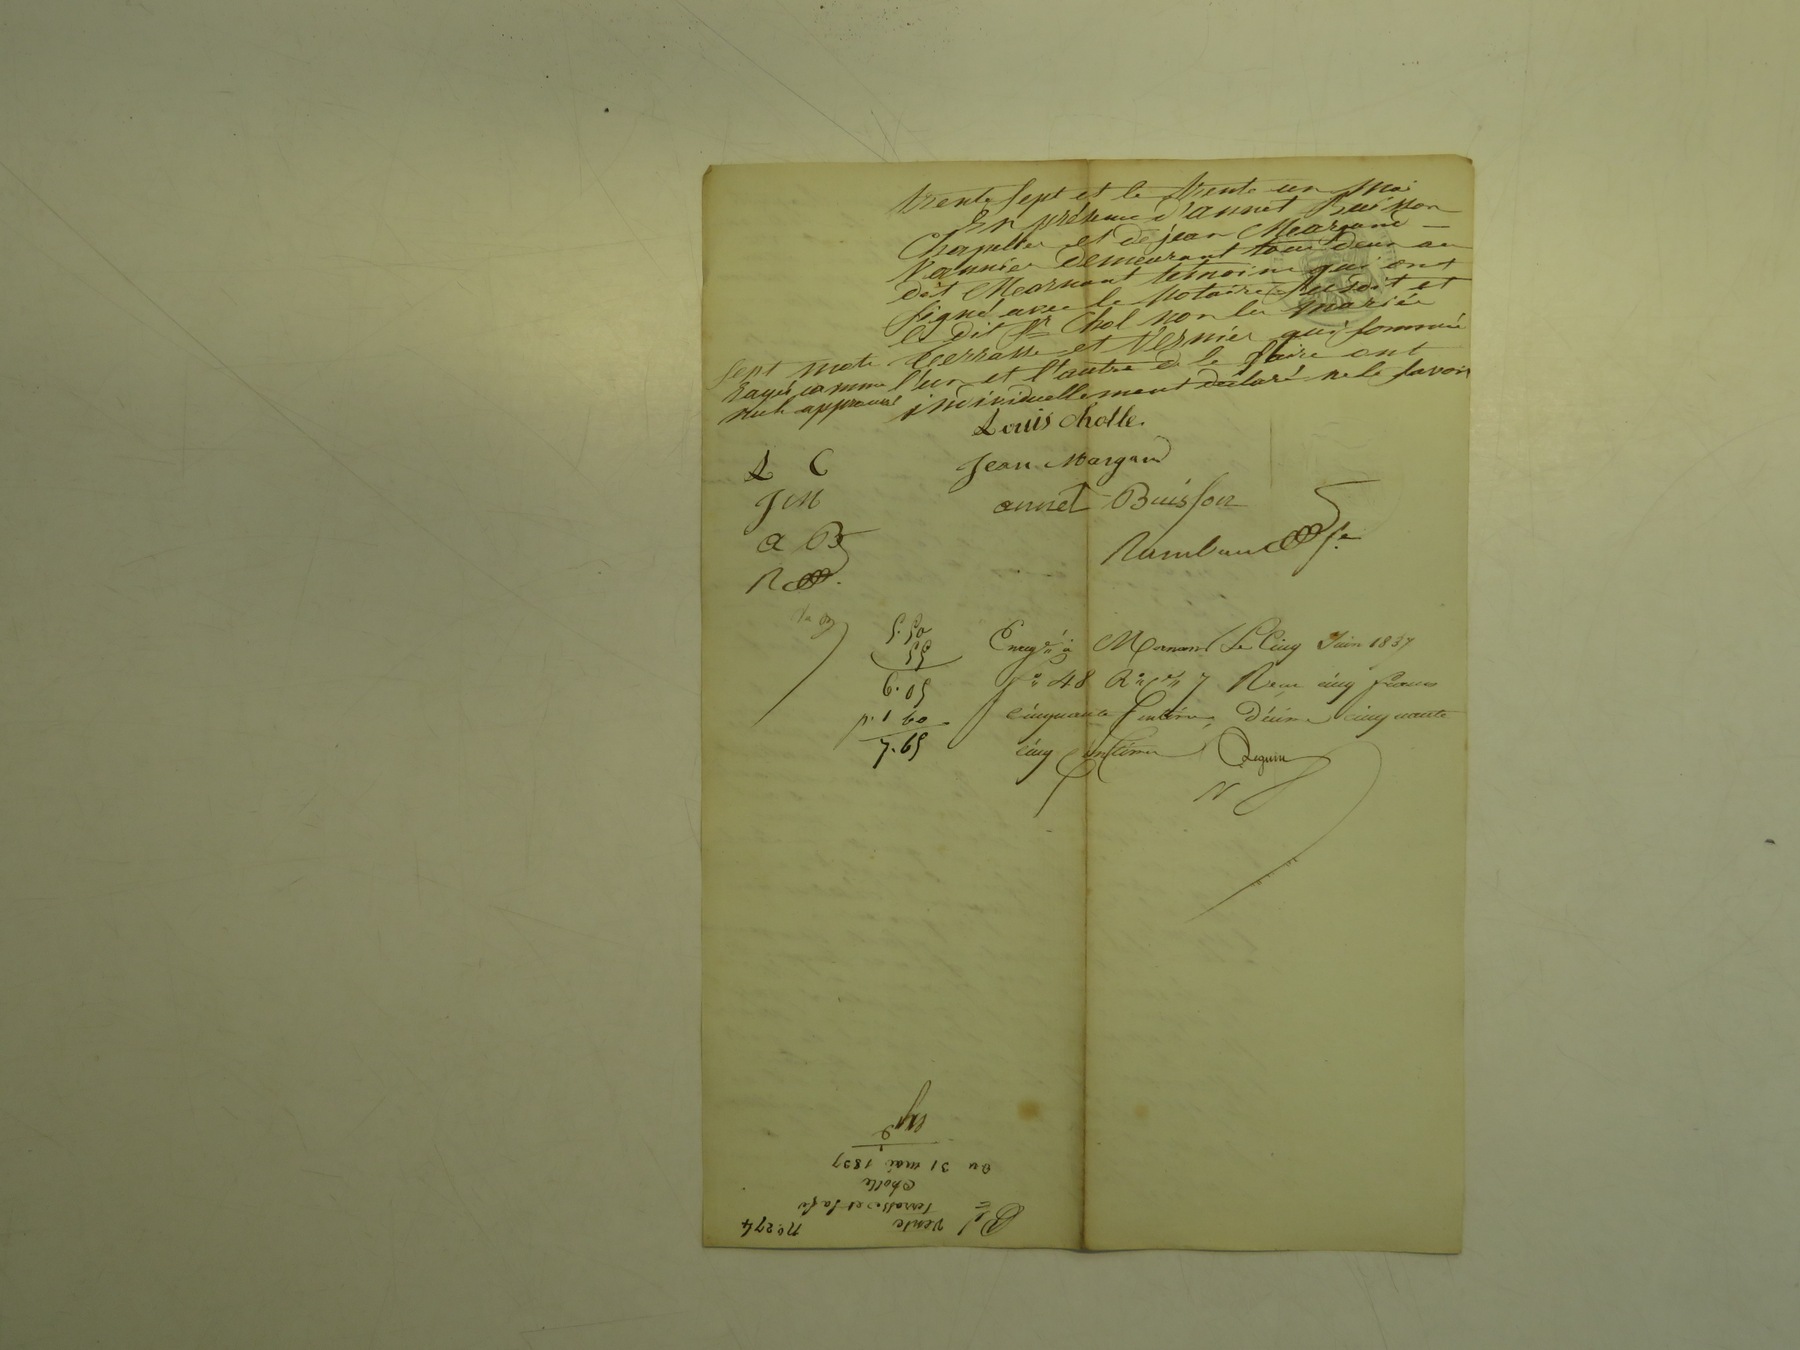 trente sept et le trente un mai
En présence d'annet Buisson
Chapelier et de jean Margand
Vannier demeurant tous deux au
dit Mornant temoins qui ont
signé avec le Notaire Susdit et
le dit Sr Chol non les mariés
terrasse et Vernier qui sommés
l'un et l'autre de le faire ont
individuellement déclaré ne le savoir
sept mots
rayés comme
nuls approuvés
Louis Cholle
Jean Margand
annet Buisson
L C
J M
a B
R
5.50
55
6.05
p. 1 60
7.65
Enregé à Mornant Le Cinq Juin 1837
fo 48 Ro Ce 7 Reçu cinq francs
cinquante Centimes, Décime cinquante
cinq Centimes
No 274
Vente
terrasse et sa fe
Cholle
Du 31 mai 1837